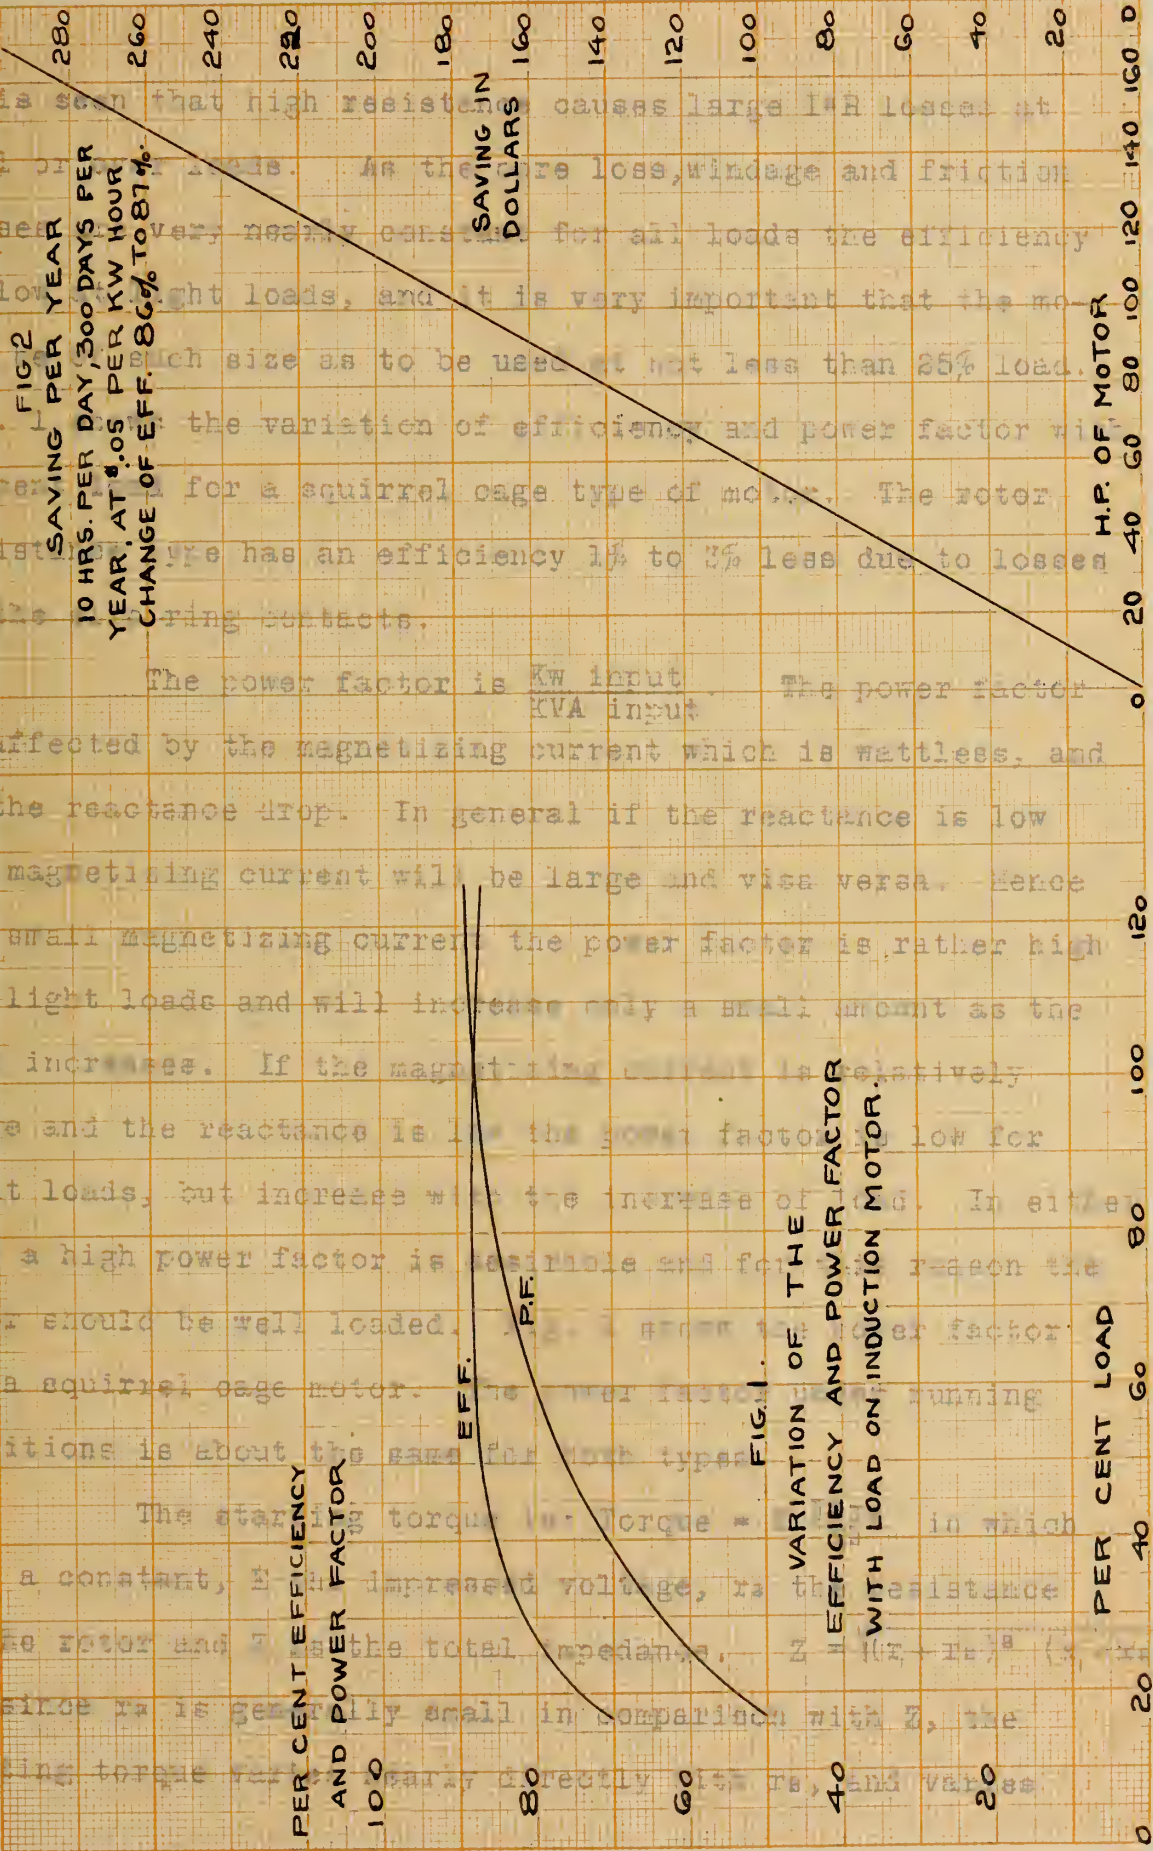 FIG 2
SAVING PER YEAR
10 HRS. PER DAY, 300 DAYS PER
YEAR, AT $.05 PER KW HOUR
CHANGE OF EFF. 86% TO 87%.
280
260
240
220
200
180
160
140
120
100
80
60
40
20
SAVING IN
DOLLARS
H.P. OF MOTOR
0 20 40 60 80 100 120 140 160 D
PER CENT EFFICIENCY
AND POWER FACTOR
100
80
60
40
20
0
EFF.
P.F.
FIG 1.
VARIATION OF THE
EFFICIENCY AND POWER FACTOR
WITH LOAD ON INDUCTION MOTOR.
PER CENT LOAD
20 40 60 80 100 120
is seen that high resistance causes large I²R losses at
loads. As the core loss, windage and friction
very nearly constant for all loads the efficiency
light loads, and it is very important that the mo-
such size as to be used at not less than 25% load.
the variation of efficiency and power factor with
for a squirrel cage type of motor. The rotor
type has an efficiency 1% to 3% less due to losses
ring contacts.
The power factor is Kw input / KVA input. The power factor
affected by the magnetizing current which is wattless, and
the reactance drop. In general if the reactance is low
magnetizing current will be large and visa versa. Hence
small magnetizing current the power factor is rather high
light loads and will increase only a small amount as the
increases. If the magnetizing current is relatively
and the reactance is low the power factor is low for
loads, but increase with the increase of load. In either
a high power factor is desirable and for this reason the
should be well loaded. Fig. 1 shows the power factor
a squirrel cage motor. The power factor under running
is about the same for both types.
The starting torque is: Torque = in which
a constant, E the impressed voltage, r₂ the resistance
rotor and Z is the total impedance. Z =
since r₂ is generally small in comparison with Z, the
torque varies nearly directly with r₂, and varies